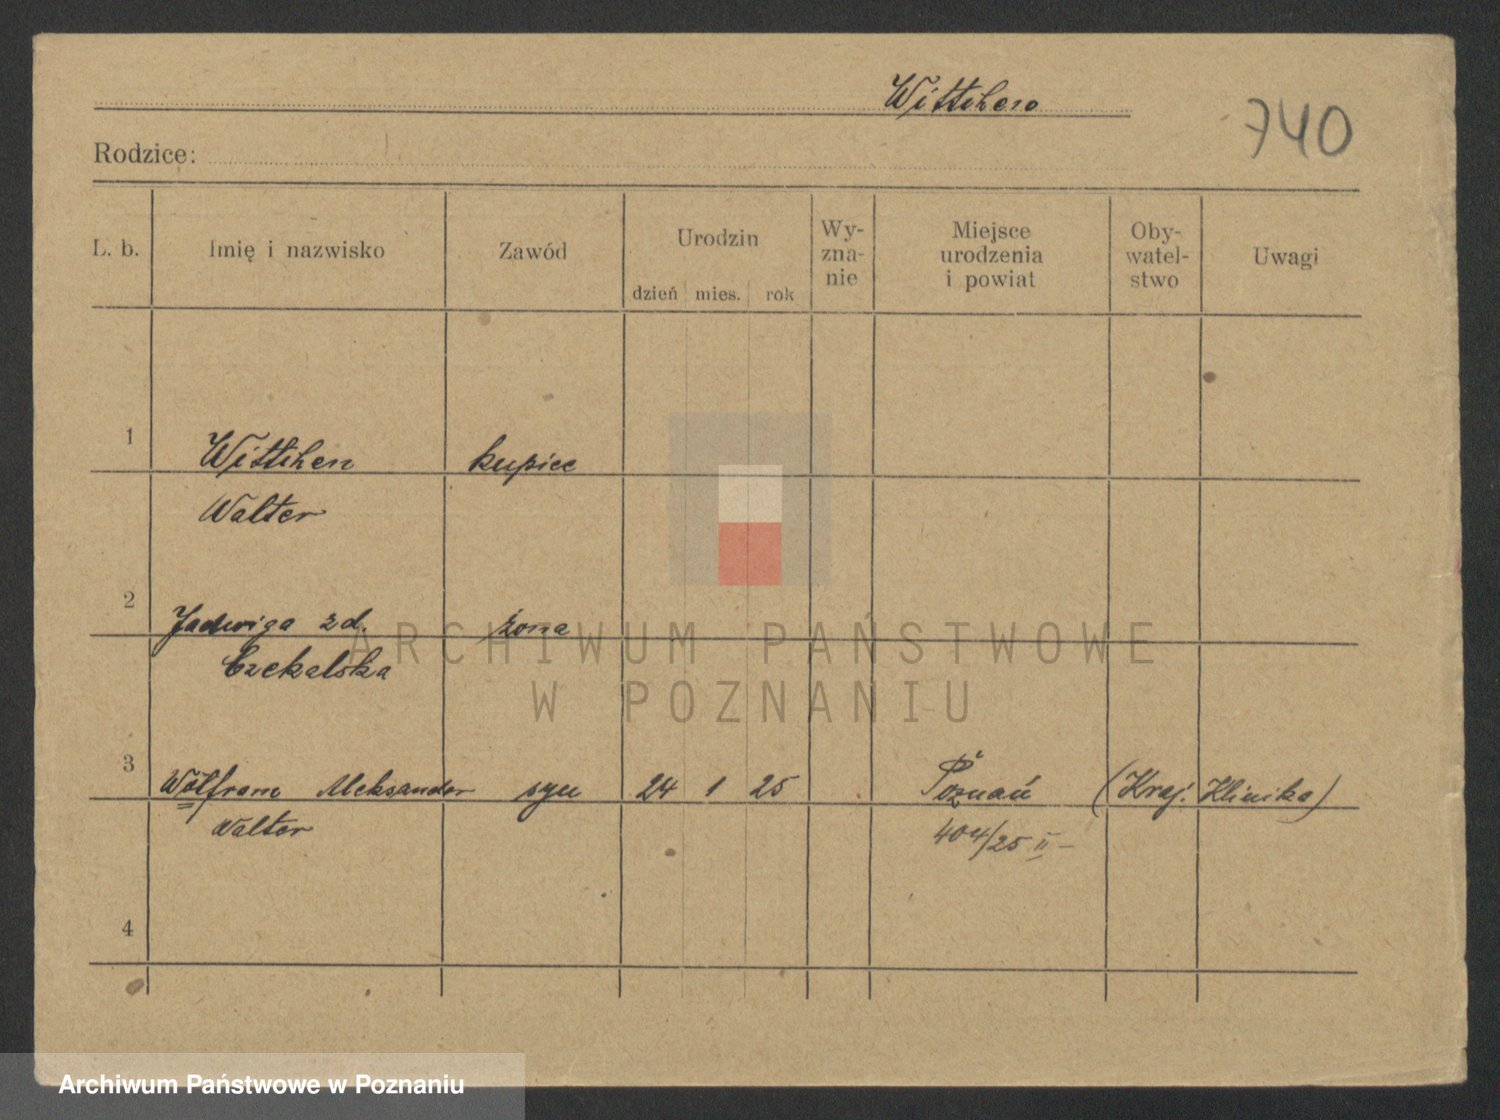 Wittihen
740
Rodzice:
L. b. Imię i nazwisko Zawód Urodzin dzień mies. rok Wy-zna-nie Miejsce urodzenia i powiat Oby-watel-stwo Uwagi
1 Wittihen kupiec
Walter
2 Jadwiga zd. żona
Czekalska
3 Wolfram Aleksander syn 24 1 25 Poznań (Kraj. Klinika)
Walter 404/25 II
4
ARCHIWUM PAŃSTWOWE
W POZNANIU
Archiwum Państwowe w Poznaniu